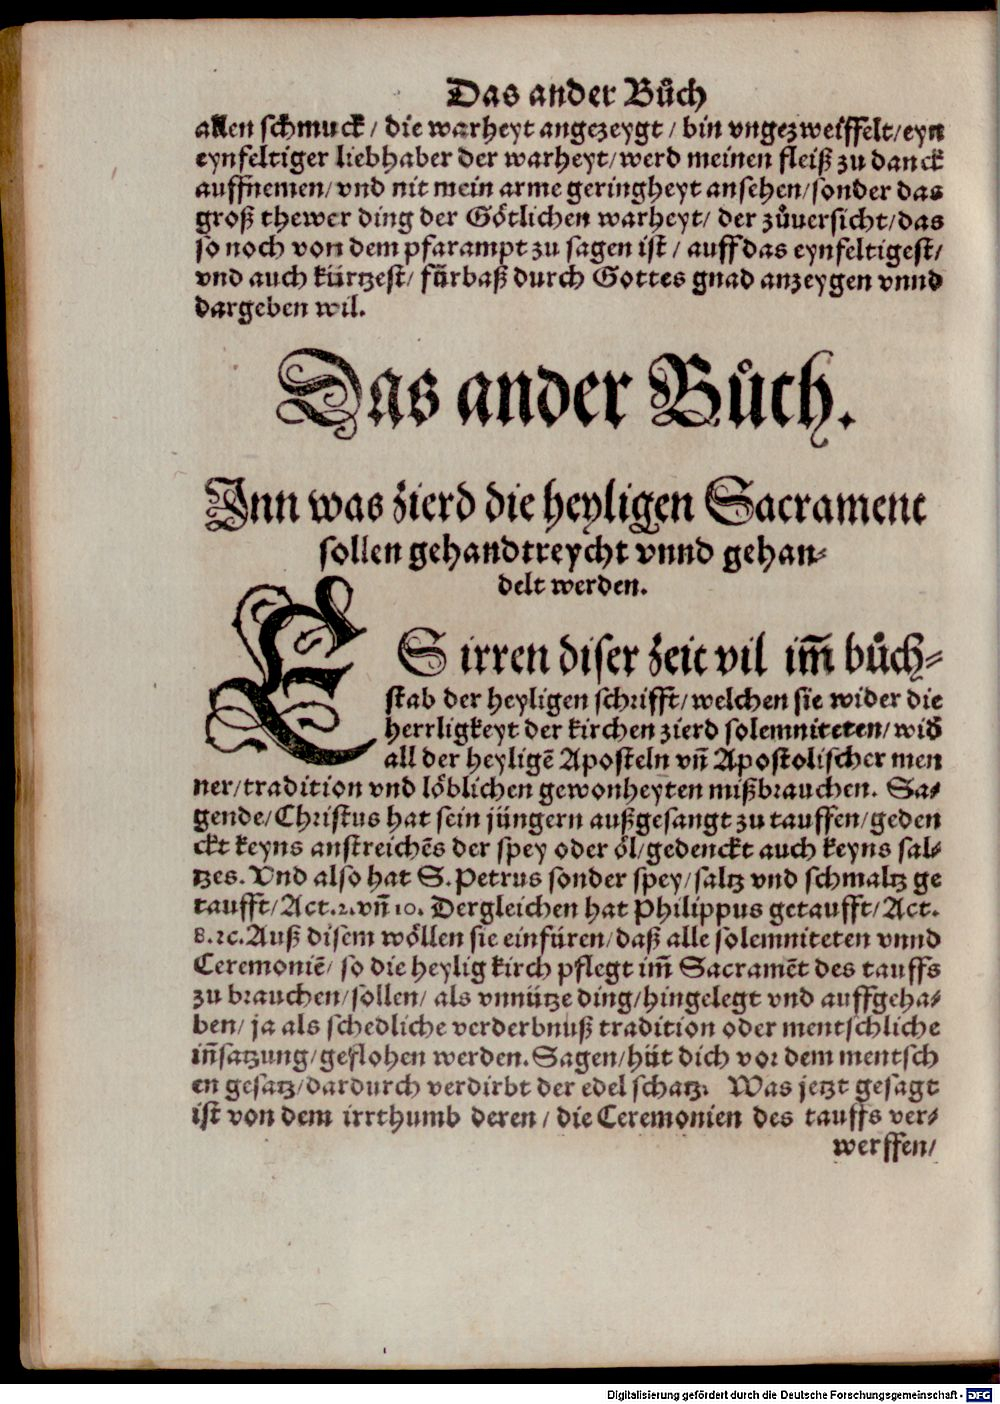 Das ander Bůch
allen schmuck / die warheyt angezeygt / bin vngezweiffelt/eyn
eynfeltiger liebhaber der warheyt/werd meinen fleiß zu danck
auffnemen/vnd nit mein arme geringheyt ansehen/sonder das
groß thewer ding der Götlichen warheyt/ der zůuersicht/das
so noch von dem pfarampt zu sagen ist / auff das eynfeltigest/
vnd auch kürtzest/ fürbaß durch Gottes gnad anzeygen vnnd
dargeben wil.
Das ander Bůch.
Inn was zierd die heyligen Sacrament
sollen gehandtreycht vnnd gehan-
delt werden.
ES irren diser zeit vil im̃ bůch-
stab der heyligen schrifft/welchen sie wider die
herrligkeyt der kirchen zierd solemniteten/wid̃
all der heyligẽ Aposteln vñ Apostolischer men
ner/tradition vnd löblichen gewonheyten mißbrauchen. Sa-
gende/Christus hat sein jüngern außgesangt zu tauffen/geden
ckt keyns anstreichẽs der spey oder öl/gedenckt auch keyns sal-
tzes. Vnd also hat S. Petrus sonder spey/saltz vnd schmaltz ge
taufft/Act.2.vñ 10. Dergleichen hat Philippus getaufft/Act.
8.ꝛc.Auß disem wöllen sie einfüren/daß alle solemniteten vnnd
Ceremoniẽ/ so die heylig kirch pflegt im̃ Sacramẽt des tauffs
zu brauchen/sollen/ als vnnütze ding/hingelegt vnd auffgeha-
ben/ ja als schedliche verderbnuß tradition oder mentschliche
iñsatzung/geflohen werden. Sagen/hüt dich vor dem mentsch
en gesatz/dardurch verdirbt der edel schatz. Was jetzt gesagt
ist von dem irrthumb deren / die Ceremonien des tauffs ver-
werffen/
Digitalisierung gefördert durch die Deutsche Forschungsgemeinschaft - DFG